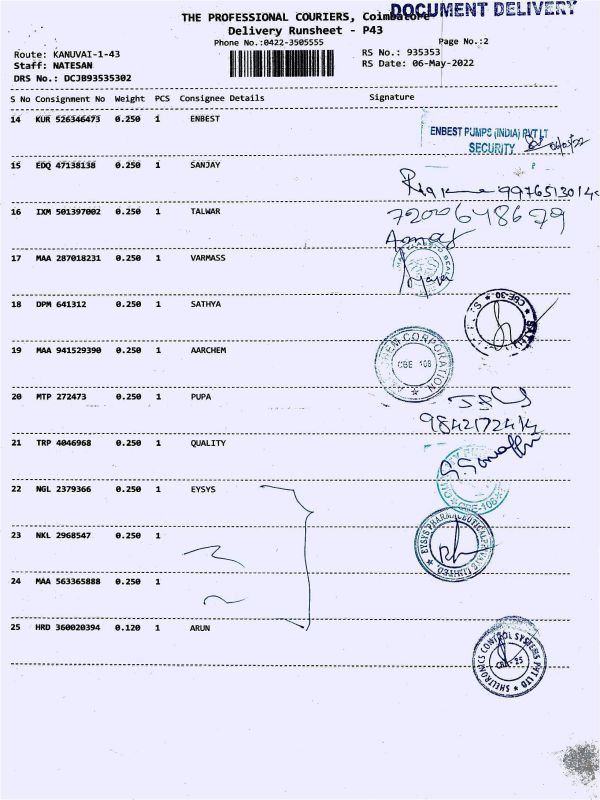 DOCUMENT DELIVERY
THE PROFESSIONAL COURIERS, Coimbatore
Delivery Runsheet - P43
Phone No.:0422-3505555
Page No.:2
Route: KANUVAI-1-43
RS No.: 935353
Staff: NATESAN
RS Date: 06-May-2022
DRS No.: DCJB93535302
S No Consignment No Weight PCS Consignee Details Signature
14 KUR 526346473 0.250 1 ENBEST
ENBEST PUMPS (INDIA) PVT LT
SECURITY
15 EDQ 47138138 0.250 1 SANJAY
16 IXM 501397002 0.250 1 TALWAR
7200648679
17 MAA 287018231 0.250 1 VARMASS
18 DPM 641312 0.250 1 SATHYA
CBE-30
19 MAA 941529390 0.250 1 AARCHEM
CORPORATION
CBE 108
20 MTP 272473 0.250 1 PUPA
9842172414
21 TRP 4046968 0.250 1 QUALITY
CBE-108
22 NGL 2379366 0.250 1 EYSYS
EYSYS PHARMACEUTICAL PRIVATE LIMITED
23 NKL 2968547 0.250 1
24 MAA 563365888 0.250 1
25 HRD 360020394 0.120 1 ARUN
SHELTRONICS CONTROL SYSTEMS PVT LTD
CBE-25